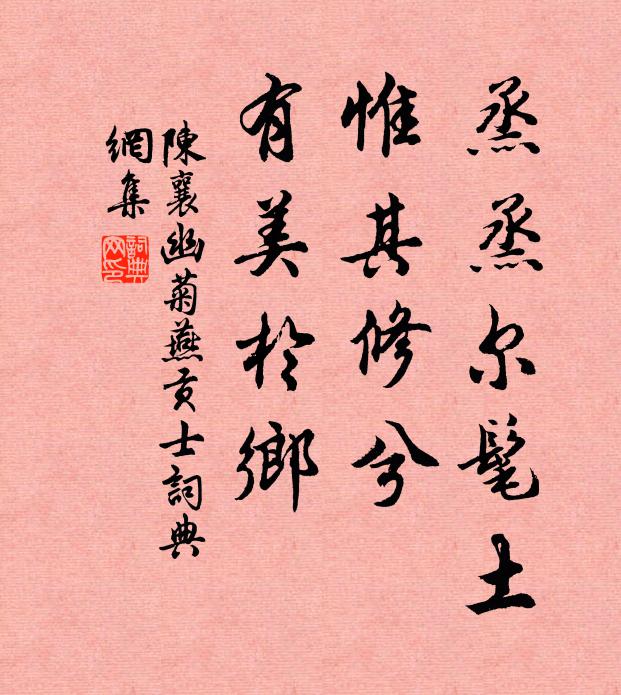 烝烝尔髦士
惟其修兮
有美於鄉
陳襄幽菊燕貢士詞典
網集
詞典
网印